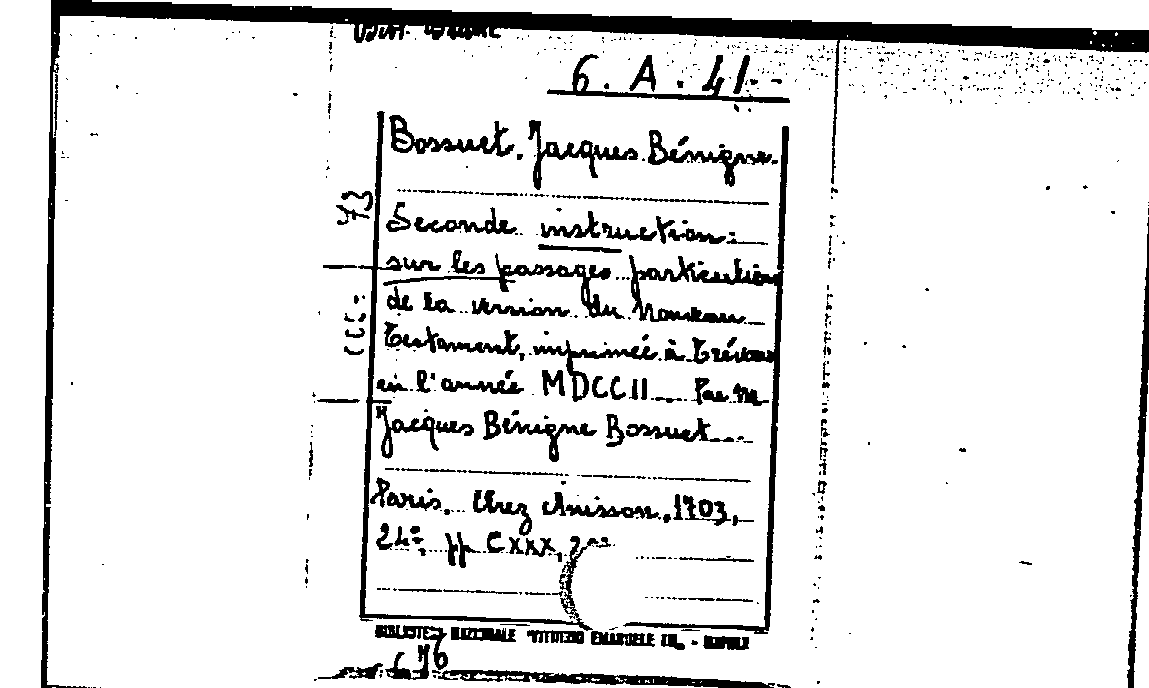 6. A. 41
Bossuet, Jacques Bénigne.
73
Seconde instruction
sur les passages particuliers
de la version du Nouveau
Testament, imprimée à Trévoux
en l'année MDCCII... Par M.
Jacques Bénigne Bossuet...
Paris. Chez Anisson, 1703,
24°, pp CXXX,
BIBLIOTECA NAZIONALE "VITTORIO EMANUELE III" - NAPOLI